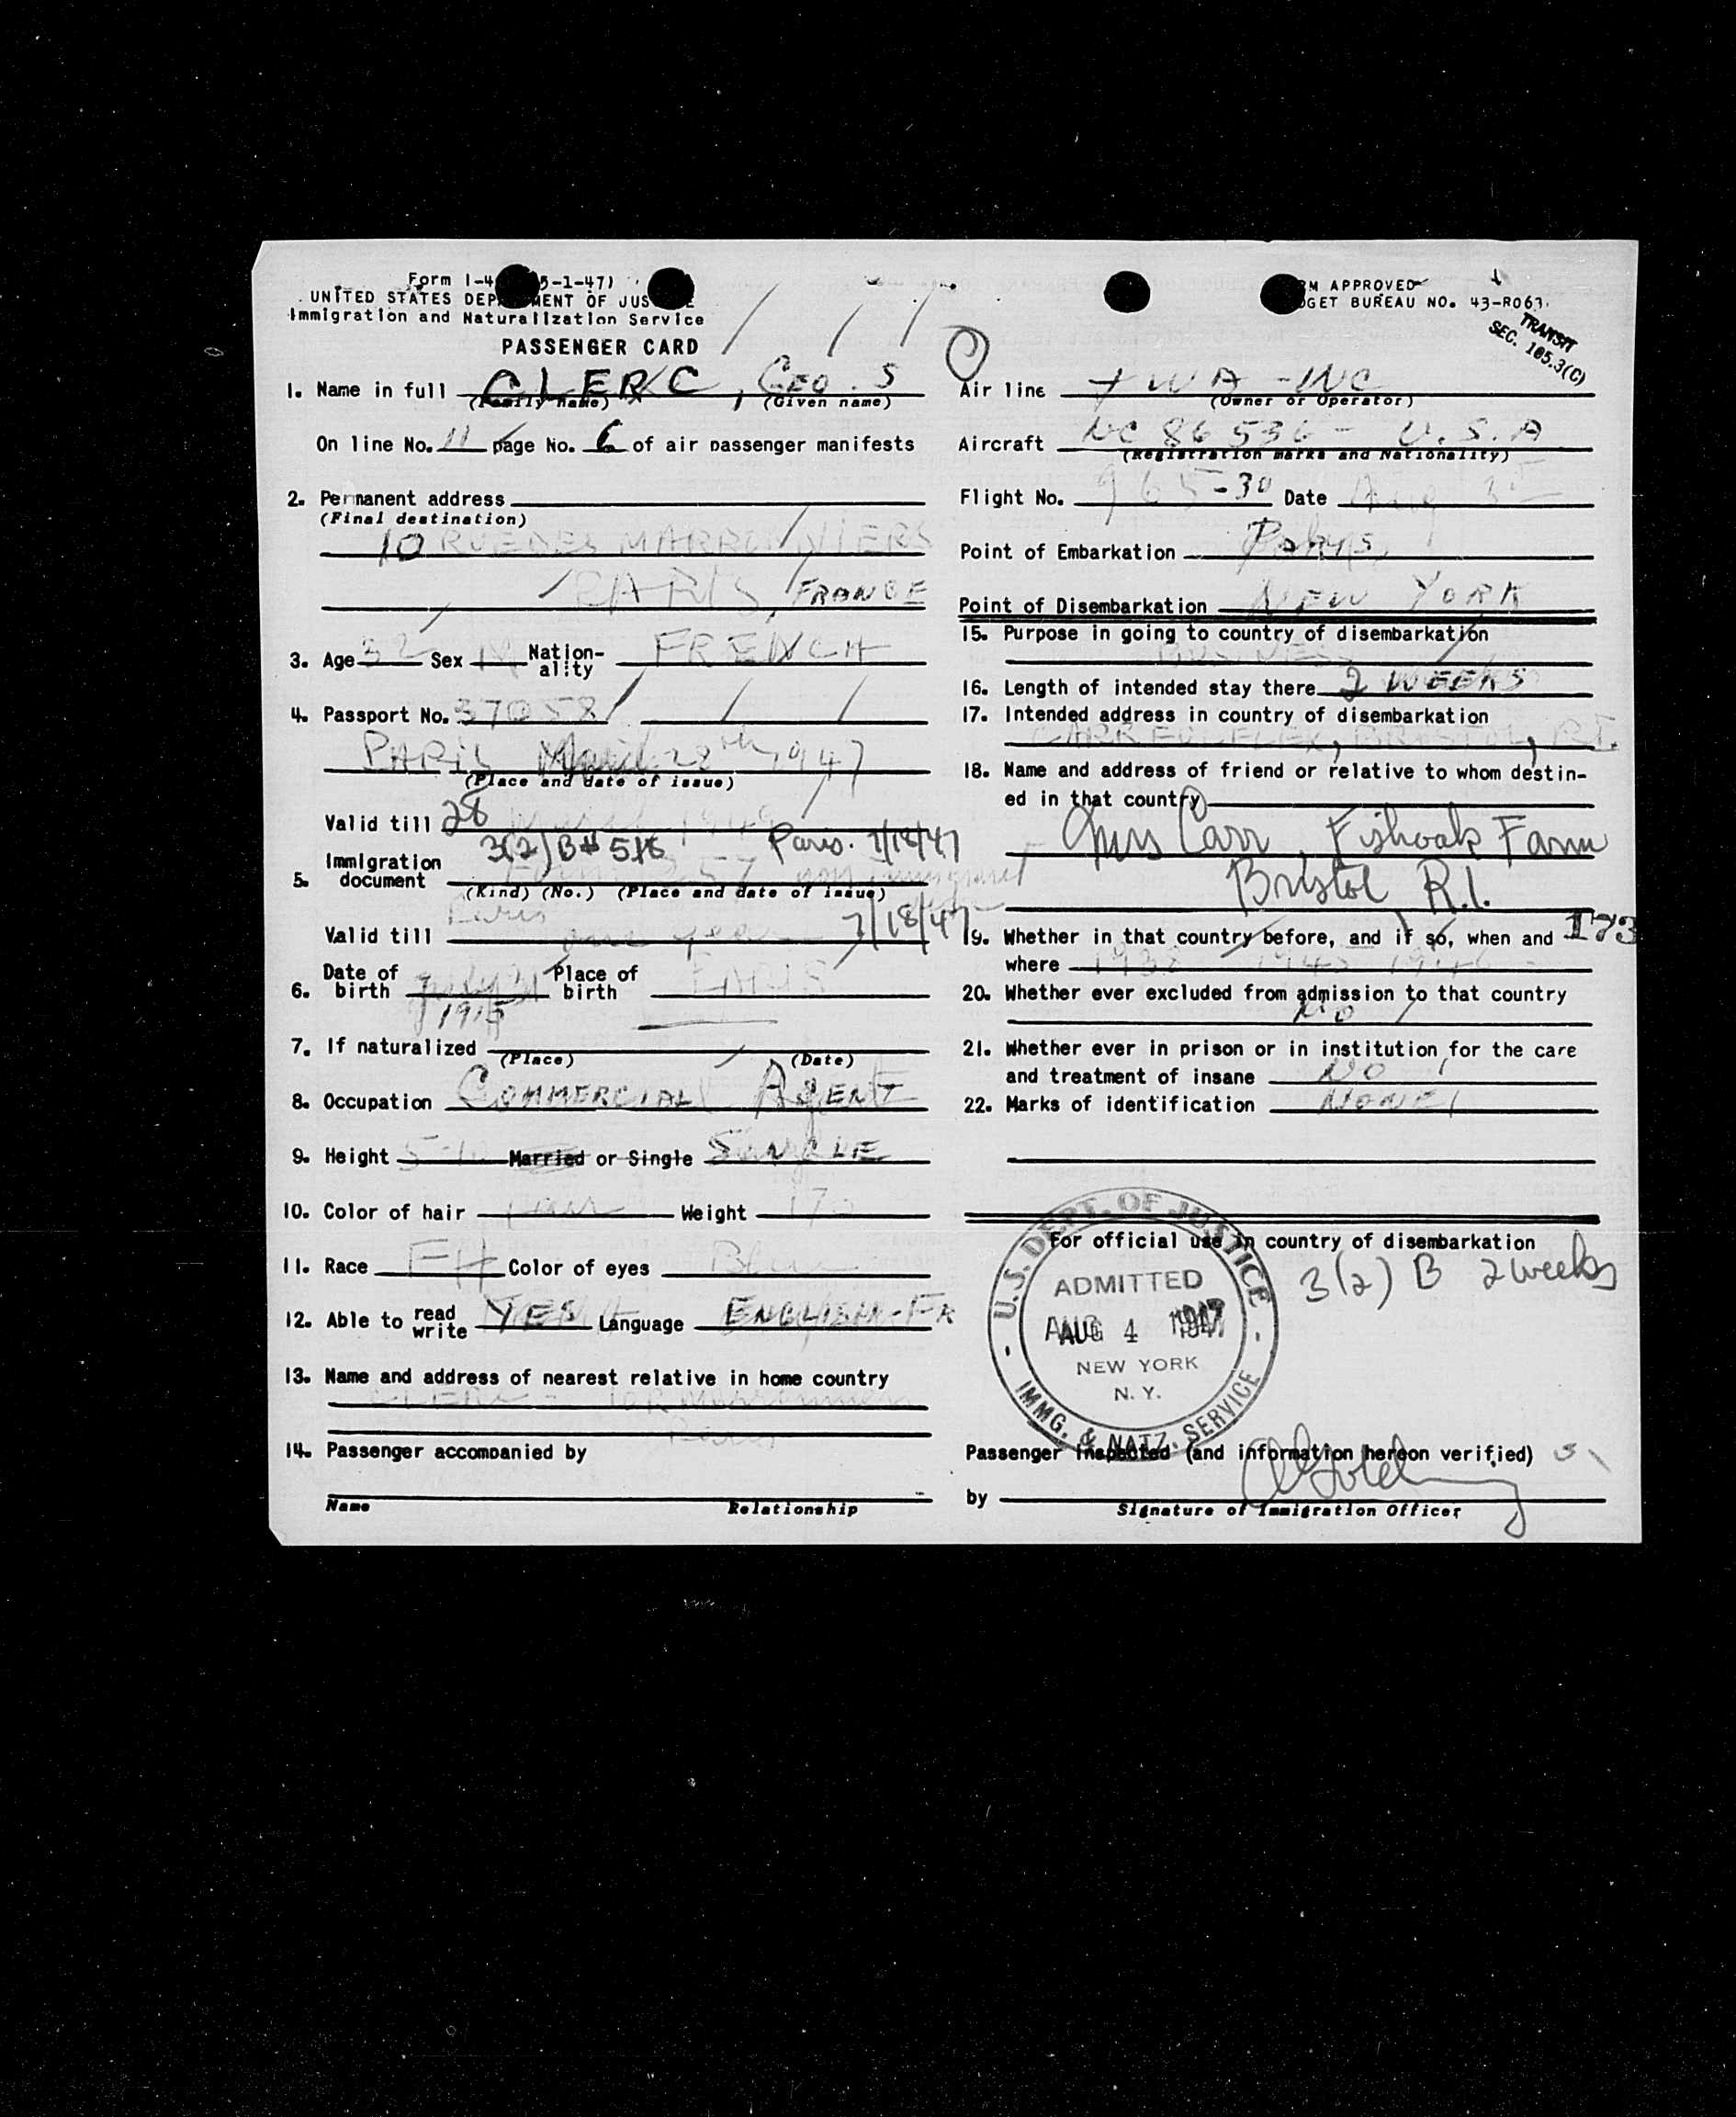 Form I-4 5-1-47)
UNITED STATES DEP MENT OF JUS E
Immigration and Naturalization Service
PASSENGER CARD
1. Name in full CLERC, GEO. S
(Family name) (Given name)
On line No. 11 page No. 6 of air passenger manifests
2. Permanent address
(Final destination)
10 RUE DES MARRONNIERS
PARIS, FRANCE
3. Age 32 Sex M Nation-ality FRENCH
4. Passport No. 37058
PARIS March 28th 1947
(Place and date of issue)
Valid till 28 March 1949
3(2) B# 516 Paris. 7/18/47
5. Immigration document
(Kind) (No.) (Place and date of issue)
Paris
Valid till one year 7/18/47
6. Date of birth July 31 1915 Place of birth PARIS
7. If naturalized
(Place) (Date)
8. Occupation COMMERCIAL AGENT
9. Height 5-10 Married or Single SINGLE
10. Color of hair Fair Weight 170
11. Race FH Color of eyes Blue
12. Able to read write YES Language ENGLISH-FR
13. Name and address of nearest relative in home country
CLERC - 10 R Marronniers
Paris
14. Passenger accompanied by
Name Relationship
RM APPROVED
DGET BUREAU NO. 43-R063.
TRANSIT
SEC. 105.3(C)
Air line TWA-INC
(Owner or Operator)
Aircraft NC 86536 - U.S.A
(Registration marks and Nationality)
Flight No. 965-30 Date Aug 3
Point of Embarkation Paris
Point of Disembarkation NEW YORK
15. Purpose in going to country of disembarkation
BUSINESS
16. Length of intended stay there 2 WEEKS
17. Intended address in country of disembarkation
BRISTOL, R.I.
18. Name and address of friend or relative to whom destin-
ed in that country
Mrs Carr, Fishoak Farm
Bristol R.I.
19. Whether in that country before, and if so, when and 173
where 1938 1945 1946
20. Whether ever excluded from admission to that country
NO
21. Whether ever in prison or in institution for the care
and treatment of insane NO
22. Marks of identification NONE
For official use in country of disembarkation
3(2) B 2 weeks
U.S. DEPT. OF JUSTICE
ADMITTED
AUG 4 1947
NEW YORK
N. Y.
IMMG. & NATZ. SERVICE
Passenger Inspected (and information hereon verified)
by
Signature of Immigration Officer